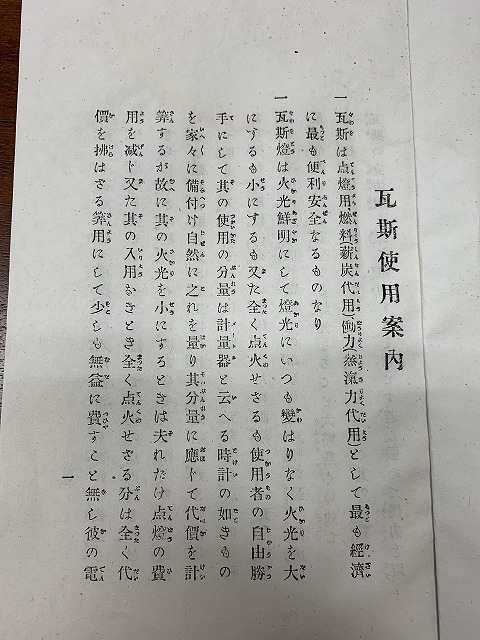 瓦斯使用案内
一 瓦斯は点燈用燃料(薪炭代用)働力(蒸滊力代用)として最も經濟
に最も便利安全なるものなり
一 瓦斯燈は火光鮮明にして燈光にいつも變はりなく火光を大
にするも小にするも又た全く点火せざるも使用者の自由勝
手にして其の使用の分量は計量器と云へる時計の如きもの
を家々に備付け自然に之れを量り其分量に應じて代價を計
算するが故に其の火光を小にするときは夫れだけ点燈の費
用を减じ又た其の入用なきとき全く点火せざる分は全く代
價を拂はざる算用にして少しも無益に費すこと無し彼の電
一